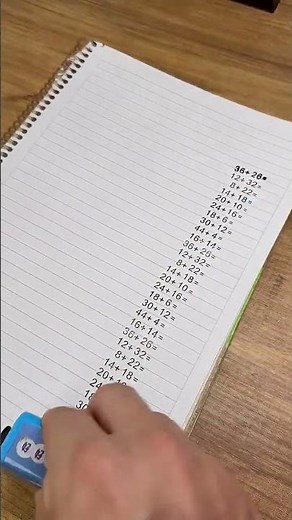 36+26=
12+32=
8+22=
14+18=
20+10=
24+16=
18+6=
30+12=
44+4=
16+14=
36+26=
12+32=
8+22=
14+18=
20+10=
24+16=
18+6=
30+12=
44+4=
16+14=
36+26=
12+32=
8+22=
14+18=
20+10
24
18
30